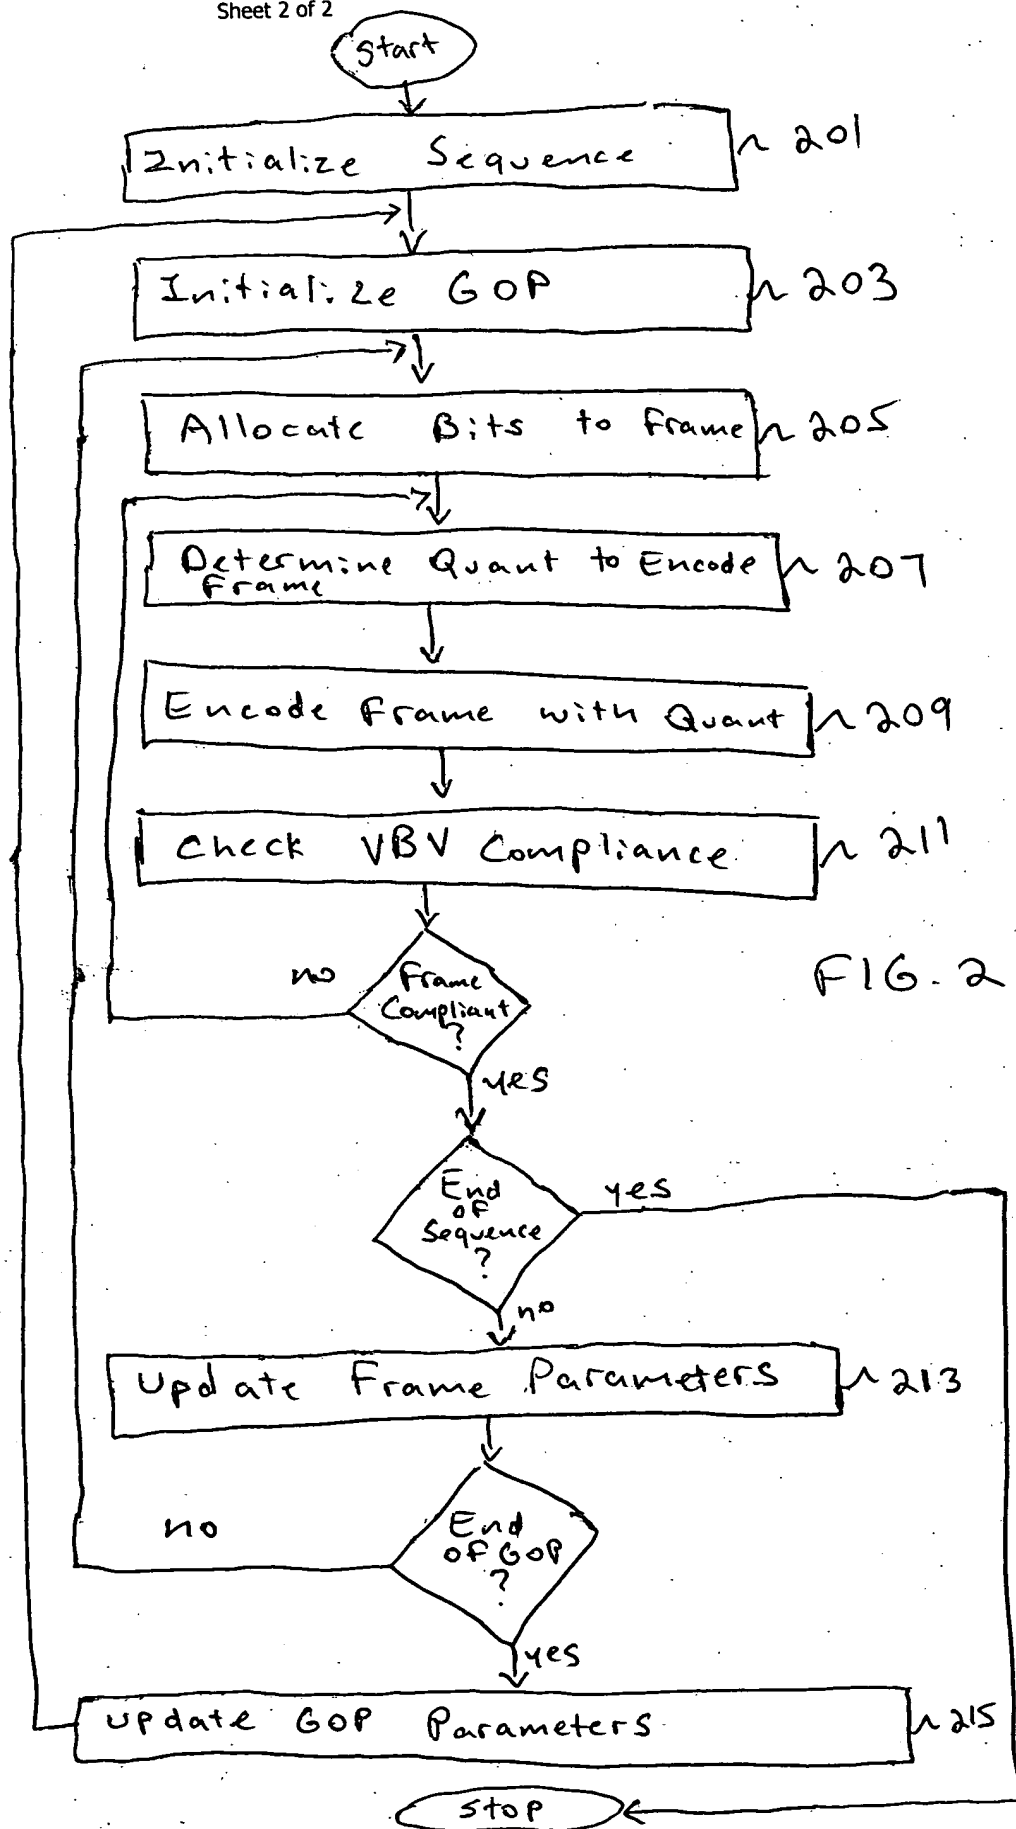 Sheet 2 of 2
Start
Initialize Sequence 201
Initialize GOP 203
Allocate Bits to Frame 205
Determine Quant to Encode 207
Frame
Encode Frame with Quant 209
Check VBV Compliance 211
FIG. 2
no
Frame
Compliant
?
yes
End
of
Sequence
?
yes
no
Update Frame Parameters 213
no
End
of GOP
?
yes
Update GOP Parameters 215
Stop